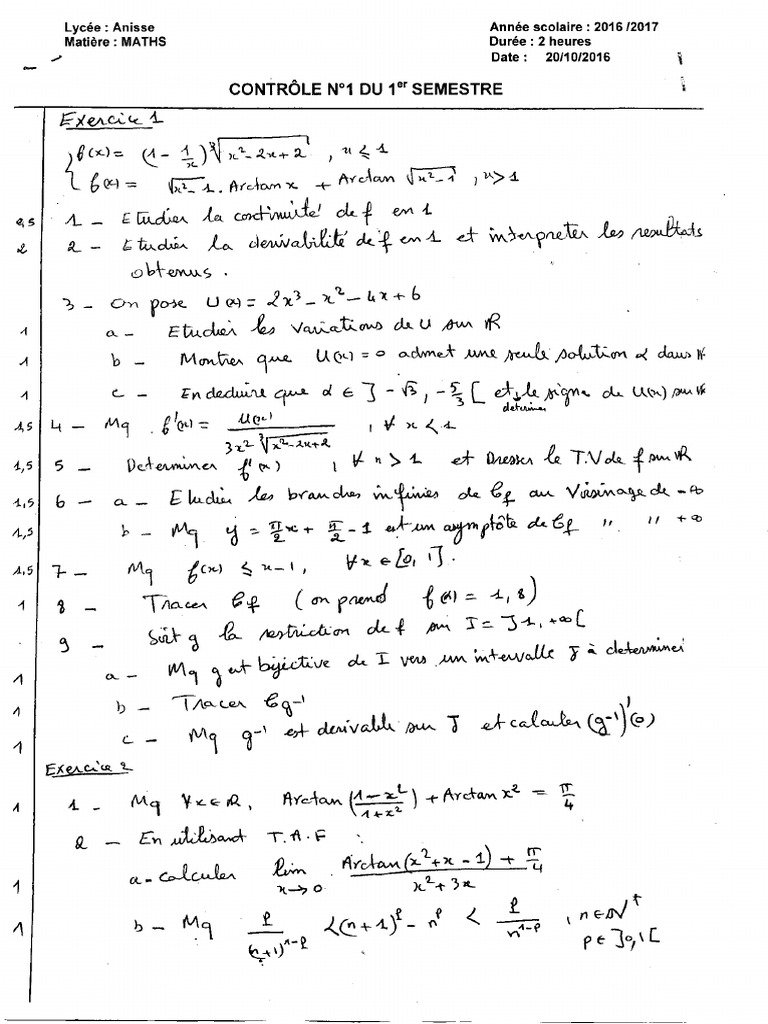 Lycée : Anisse
Année scolaire : 2016 /2017
Matière : MATHS
Durée : 2 heures
Date : 20/10/2016
CONTRÔLE N°1 DU 1er SEMESTRE
Exercice 1
f(x) = (1 - 1/x) ∛(x² - 2x + 2) , x ≤ 1
f(x) = √(x² - 1) . Arctan x + Arctan √(x² - 1) , x > 1
0,5 1 - Etudier la continuité de f en 1
2 2 - Etudier la derivabilité de f en 1 et interpreter les resultats
obtenus .
3 - On pose U(x) = 2x³ - x² - 4x + 6
1 a - Etudier les variations de U sur IR
1 b - Montrer que U(x) = 0 admet une seule solution α dans IR
1 c - En deduire que α ∈ ] - √3 , - 5/3 [ et le signe de U(x) sur IR
determiner
1,5 4 - Mq f'(x) = U(x) / (3x² ∛(x² - 2x + 2)) , ∀ x < 1
1,5 5 - Determiner f'(x) , ∀ x > 1 et Dresser le T.V de f sur IR
1,5 6 - a - Etudier les branches infinies de Cf au Voisinage de -∞
1,5 b - Mq y = π/2 x + π/2 - 1 est un asymptôte de Cf " " +∞
1,5 7 - Mq f(x) ≤ x - 1 , ∀x ∈ [0, 1] .
1 8 - Tracer Cf ( on prend f(α) = 1,8 )
9 - Soit g la restriction de f sur I = ]1, +∞[
1 a - Mq g est bijective de I vers un intervalle J à determiner
1 b - Tracer Cg-1
1 c - Mq g-1 est derivable sur J et calculer (g-1)'(0)
Exercice 2
1 1 - Mq ∀x ∈ IR, Arctan ((1 - x²)/(1 + x²)) + Arctan x² = π/4
2 - En utilisant T.A.F :
1 a - calculer lim x→0 (Arctan(x² + x - 1) + π/4) / (x² + 3x)
1 b - Mq p/(n+1)^(1-p) < (n+1)^p - n^p < p/n^(1-p) , n ∈ IN*
p ∈ ]0,1[